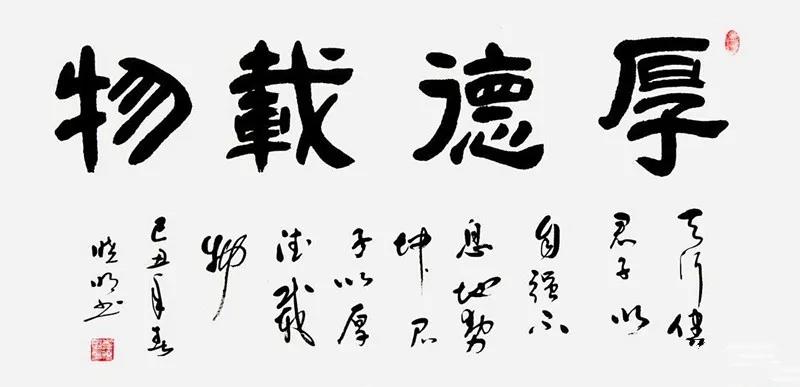 厚德載物
天行健
君子以
自强不
息地势
坤君
子以厚
德載
物
己丑年春
晓明书